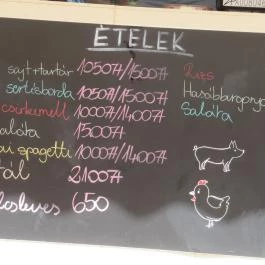 ÉTELEK
sajt+tartár 1050Ft/1500Ft
sertésborda 1050Ft/1500Ft
csirkemell 1000Ft/1400Ft
aláta 1300Ft
ai spagetti 1000Ft/1400Ft
tál 2100Ft
650
Rizs
Hasábburgonya
Saláta